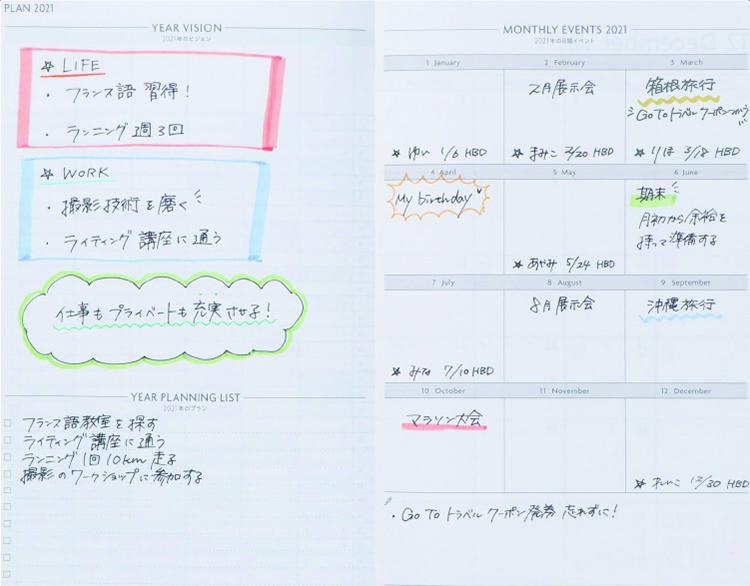 PLAN 2021
YEAR VISION
2021年のビジョン
☆ LIFE
・ フランス語 習得!
・ ランニング 週3回
☆ WORK
・ 撮影技術を磨く
・ ライティング 講座に通う
仕事もプライベートも充実させる!
YEAR PLANNING LIST
2021年のプラン
フランス語教室を探す
ライティング 講座に通う
ランニング 1回10km 走る
撮影のワークショップに参加する
MONTHLY EVENTS 2021
2021年の月間イベント
1 January
☆ ゆい 1/6 HBD
2 February
2月展示会
☆ まみこ 2/20 HBD
3 March
箱根旅行
GoToトラベル クーポンつかう
☆ りほ 3/18 HBD
4 April
My birthday
5 May
☆ あやみ 5/24 HBD
6 June
期末
月初から余裕を
持って準備する
7 July
☆ みな 7/10 HBD
8 August
8月展示会
9 September
沖縄旅行
10 October
マラソン大会
11 November
12 December
☆ れいこ 12/30 HBD
・ GoTo トラベル クーポン 発券 忘れずに!
12 December